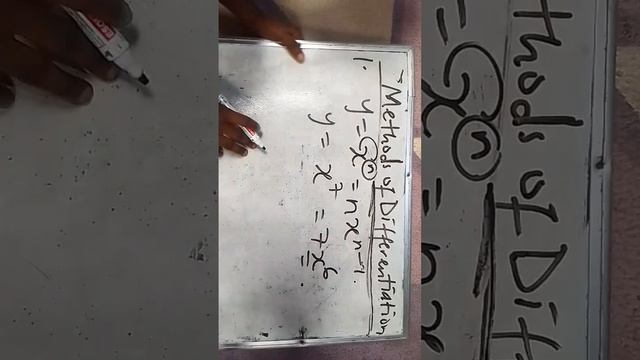 Methods of Differentiation
1. y = xⁿ = nxⁿ⁻¹.
y = x⁷ = 7x⁶.